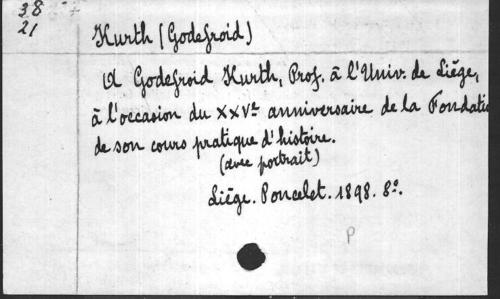 38
21
Kurth (Godefroid)
A Godefroid Kurth, Prof. à l'Univ. de Liége,
à l'occasion du XXVe anniversaire de la Fondatio
de son cours pratique d'histoire.
(avec portrait)
Liége. Poncelet. 1898. 8º.
P